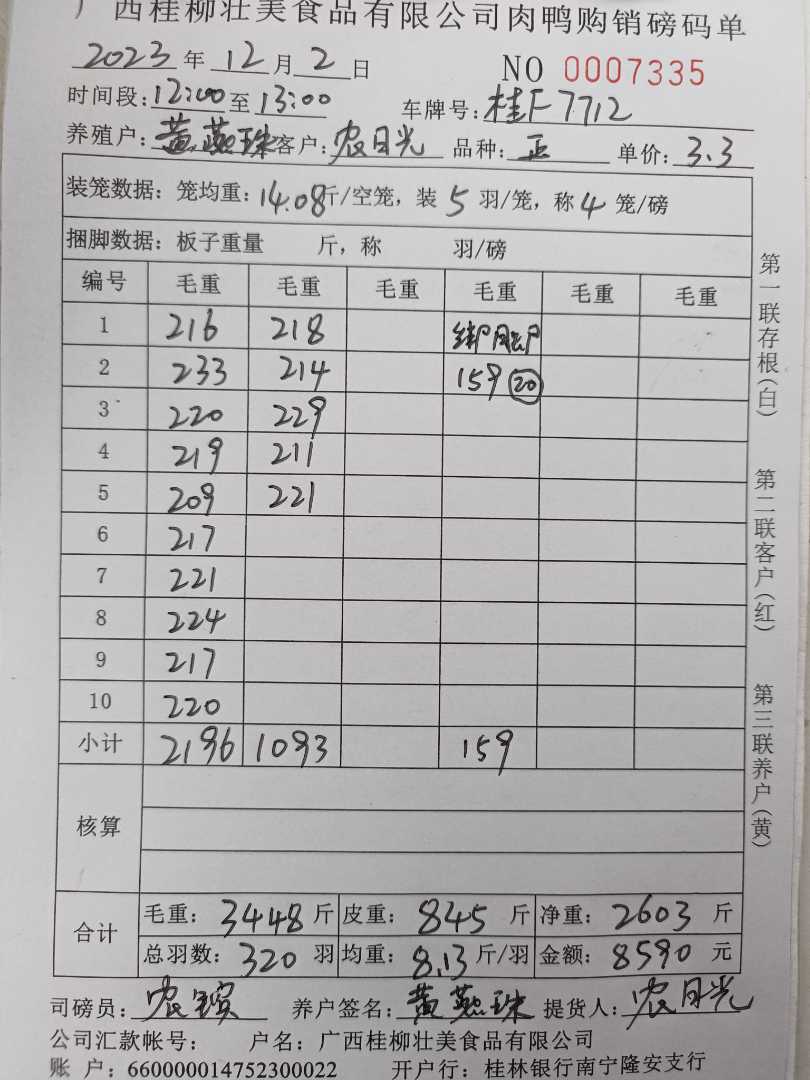 广西桂柳壮美食品有限公司肉鸭购销磅码单
2023 年 12 月 2 日 NO 0007335
时间段:12:00至13:00 车牌号:桂F7712
养殖户:黄燕珠 客户:农月光 品种:正 单价:3.3
装笼数据:笼均重:14.08斤/空笼,装 5 羽/笼,称 4 笼/磅
捆脚数据:板子重量 斤,称 羽/磅
编号 毛重 毛重 毛重 毛重 毛重 毛重
1 216 218
2 233 214 159 20
3 220 229
4 219 211
5 209 221
6 217
7 221
8 224
9 217
10 220
小计 2196 1093 159
核算
合计
毛重:3448斤 皮重:845斤 净重:2603斤
总羽数:320羽 均重:8.13斤/羽 金额:8590元
司磅员:农 养户签名:黄燕珠 提货人:农月光
公司汇款帐号: 户名:广西桂柳壮美食品有限公司
账 户:660000014752300022 开户行:桂林银行南宁隆安支行
第一联存根(白) 第二联客户(红) 第三联养户(黄)